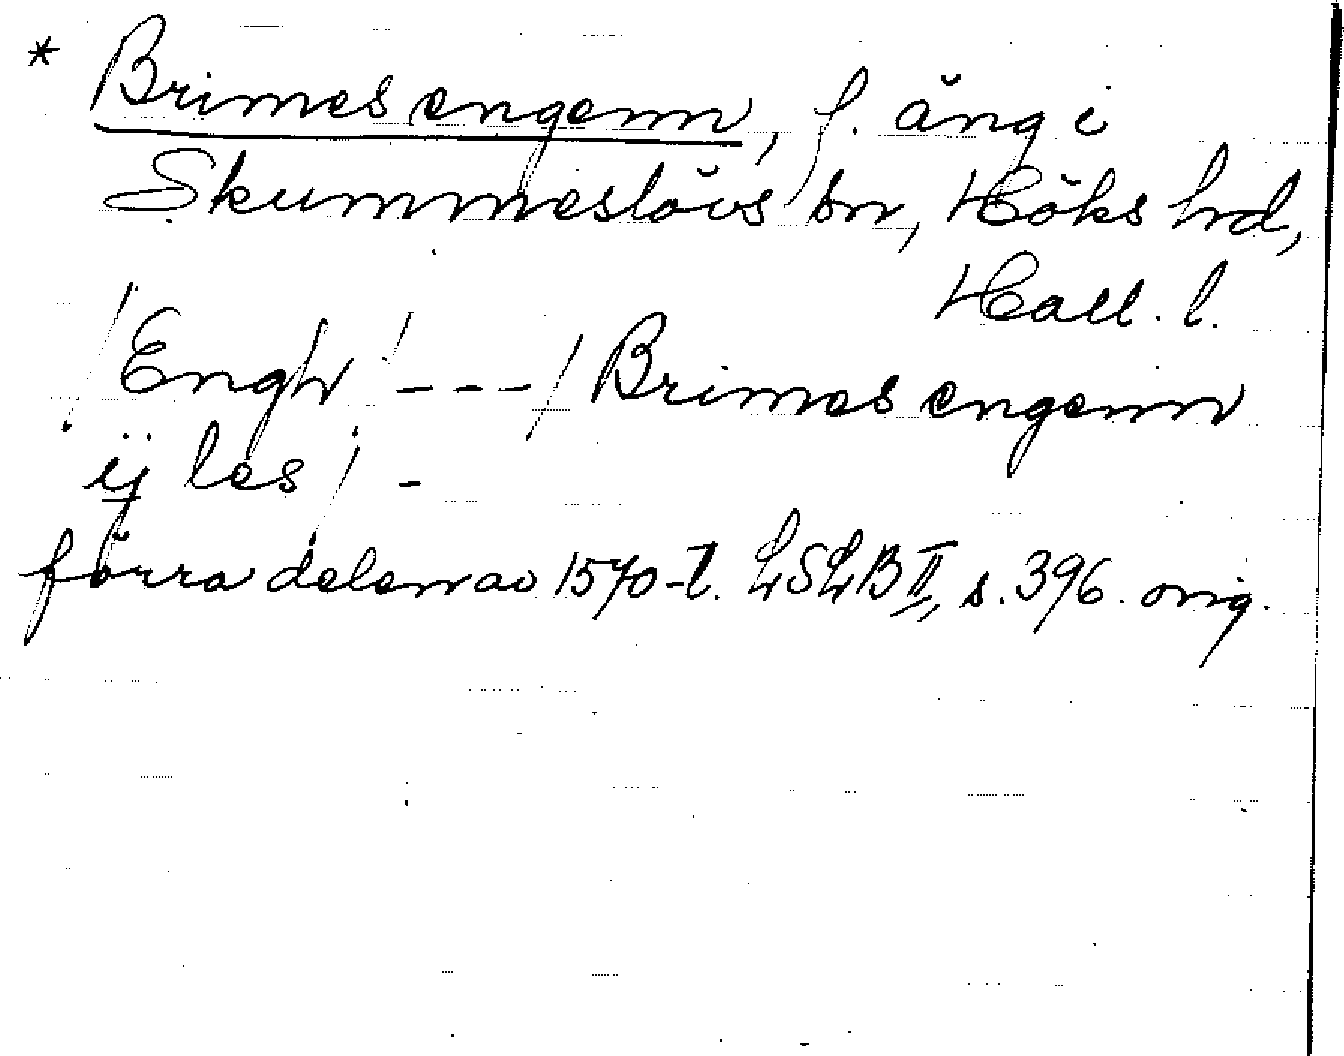 * Brimes engenn, f. äng i
Skummeslövs sn, Höks hd,
Hall. l.
/Engh/ --- / Brimes engenn
ij les / -
förra delen av 1570-t. LSLB II, s. 396. orig.